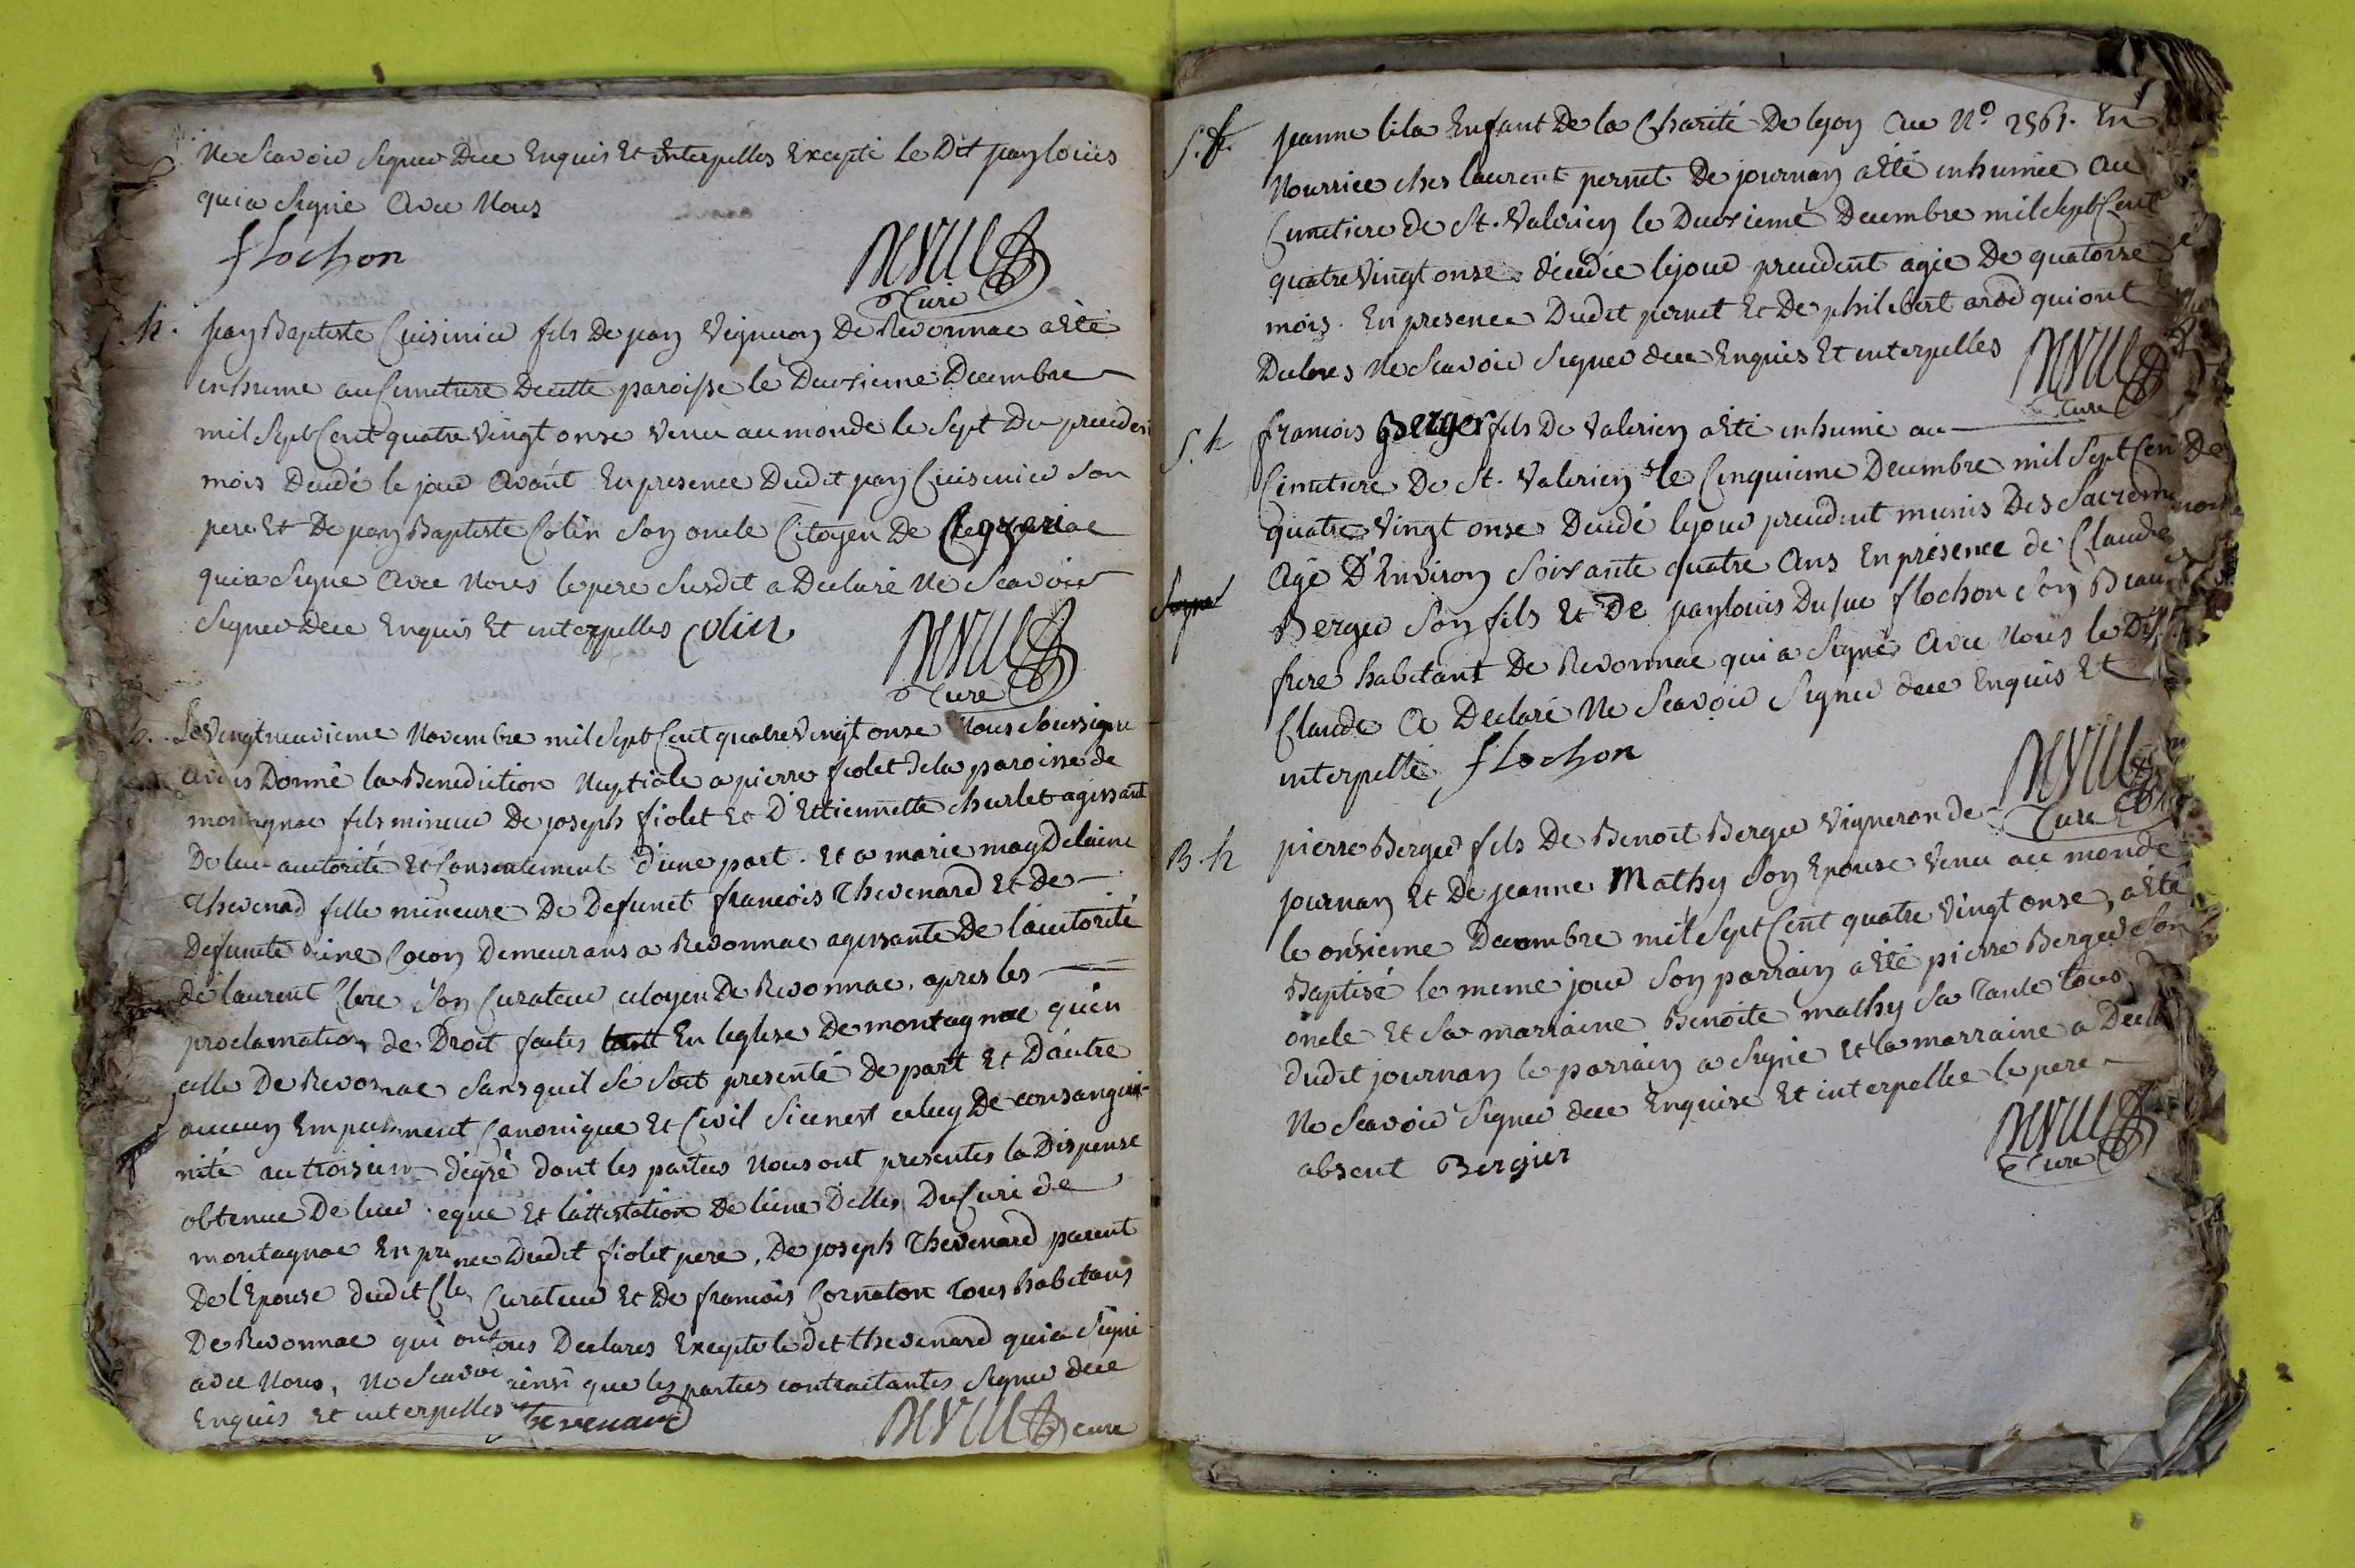 Ne Scavoir Signer Dece Enquis Et Interpelles Excepté Le Dit jean loüis
qui a Signé Avec Nous
flochon
Curé
h. jean Baptiste Cuisinier fils De jean Vigneron De Revonnac a Eté
inhumé au Cimetiere De cette paroisse le Deuxieme Decembre
mil Sept Cent quatre vingt onse venu au monde le Sept Du precedent
mois Decedé le jour Avant En presence Dudit jean Cuisinier Son
pere Et De jean Baptiste Colin Son oncle Citoyen De
qui a Signe Avec Nous le pere Susdit a Declaré Ne Scavoir
Signer Dece Enquis Et interpelles Colin
Curé
Le vingtneuvieme Novembre mil Sept Cent quatre Vingt onse Nous Soussigné
Avons Donné la Benediction Nuptiale a pierre fiolet De la paroisse de
montagnac fils mineur De joseph fiolet Et D'Ettiennette churlet agissant
De leur autorité Et Consentement d'une part. Et a marie magDelaine
Thevenard fille mineure De Defunct francois Thevenard Et de
Defuncte Demeurans a Revonnac agissante De l'autorité
de laurent Clere Son Curateur citoyen De Revonnac, apres les
proclamations de Droit faites tant En leglise De montagnac qu'en
celle De Revonnac Sans quil Se Soit presenté De part Et D'autre
aucun Empechement Canonique Et Civil Si ce nest celuy De consangui-
nité au troisieme dégré dont les parties Nous ont presentes la Dispense
obtenue De leur eque Et lattestation De lune Delles Du Curé de
montagnac En pre nce Dudit fiolet pere, De joseph Thevenard parent
De l'Epouse dudit Cle Curateur Et De francois Cornaton Tous habitans
De Revonnac qui ont ous Declares Excepté le dit thevenard qui a Signé
avec Nous, Ne Scavoi ainsi que les parties contractantes Signer dece
Enquis Et interpelles thevenard curé
S. f. jeanne lila Enfant De la Charité De lyon Au N° 2561. En
Nourrice ches laurent pernet De journan a Eté inhumée Au
Cimetiere De St. Valerien le Deuxiemé Decembre mil Sept Cent
quatre Vingt onse. decedée le jour precedent agée De quatorse
mois. En presence Dudit pernet Et De philibert qui ont
Declares Ne Scavoir Signer dece Enquis Et interpelles
Curé
S. h francois Berger fils De Valerien a Eté inhumé au
Cimetiere De St. Valerien le Cinquieme Decembre mil Sept Cen
quatre Vingt onse Decedé le jour precedent munis Des Sacreme
Agé D'Environ Soixante quatre Ans En présence de Claude
Berger Son fils Et De jean louis Duluc flochon Son Beau
frere habitant De Revonnac qui a Signé Avec Nous le Dit
Claude A Declaré Ne Scavoir Signer dece Enquis Et
interpellé flochon
Curé
B. h pierre Berger fils De Benoit Berger Vigneron de
journan Et De jeanne Mathy Son Epouse Venu au monde
le onsieme Decembre mil Sept Cent quatre Vingt onse, a Eté
Baptisé le meme jour Son parrain a Eté pierre Berger Son
oncle Et Sa marraine Benoite mathy Sa Tante tous
dudit journan le parrain a Signé Et la marraine a Decla
Ne Scavoir Signer dece Enquise Et interpellee le pere
absent Bergier
Curé